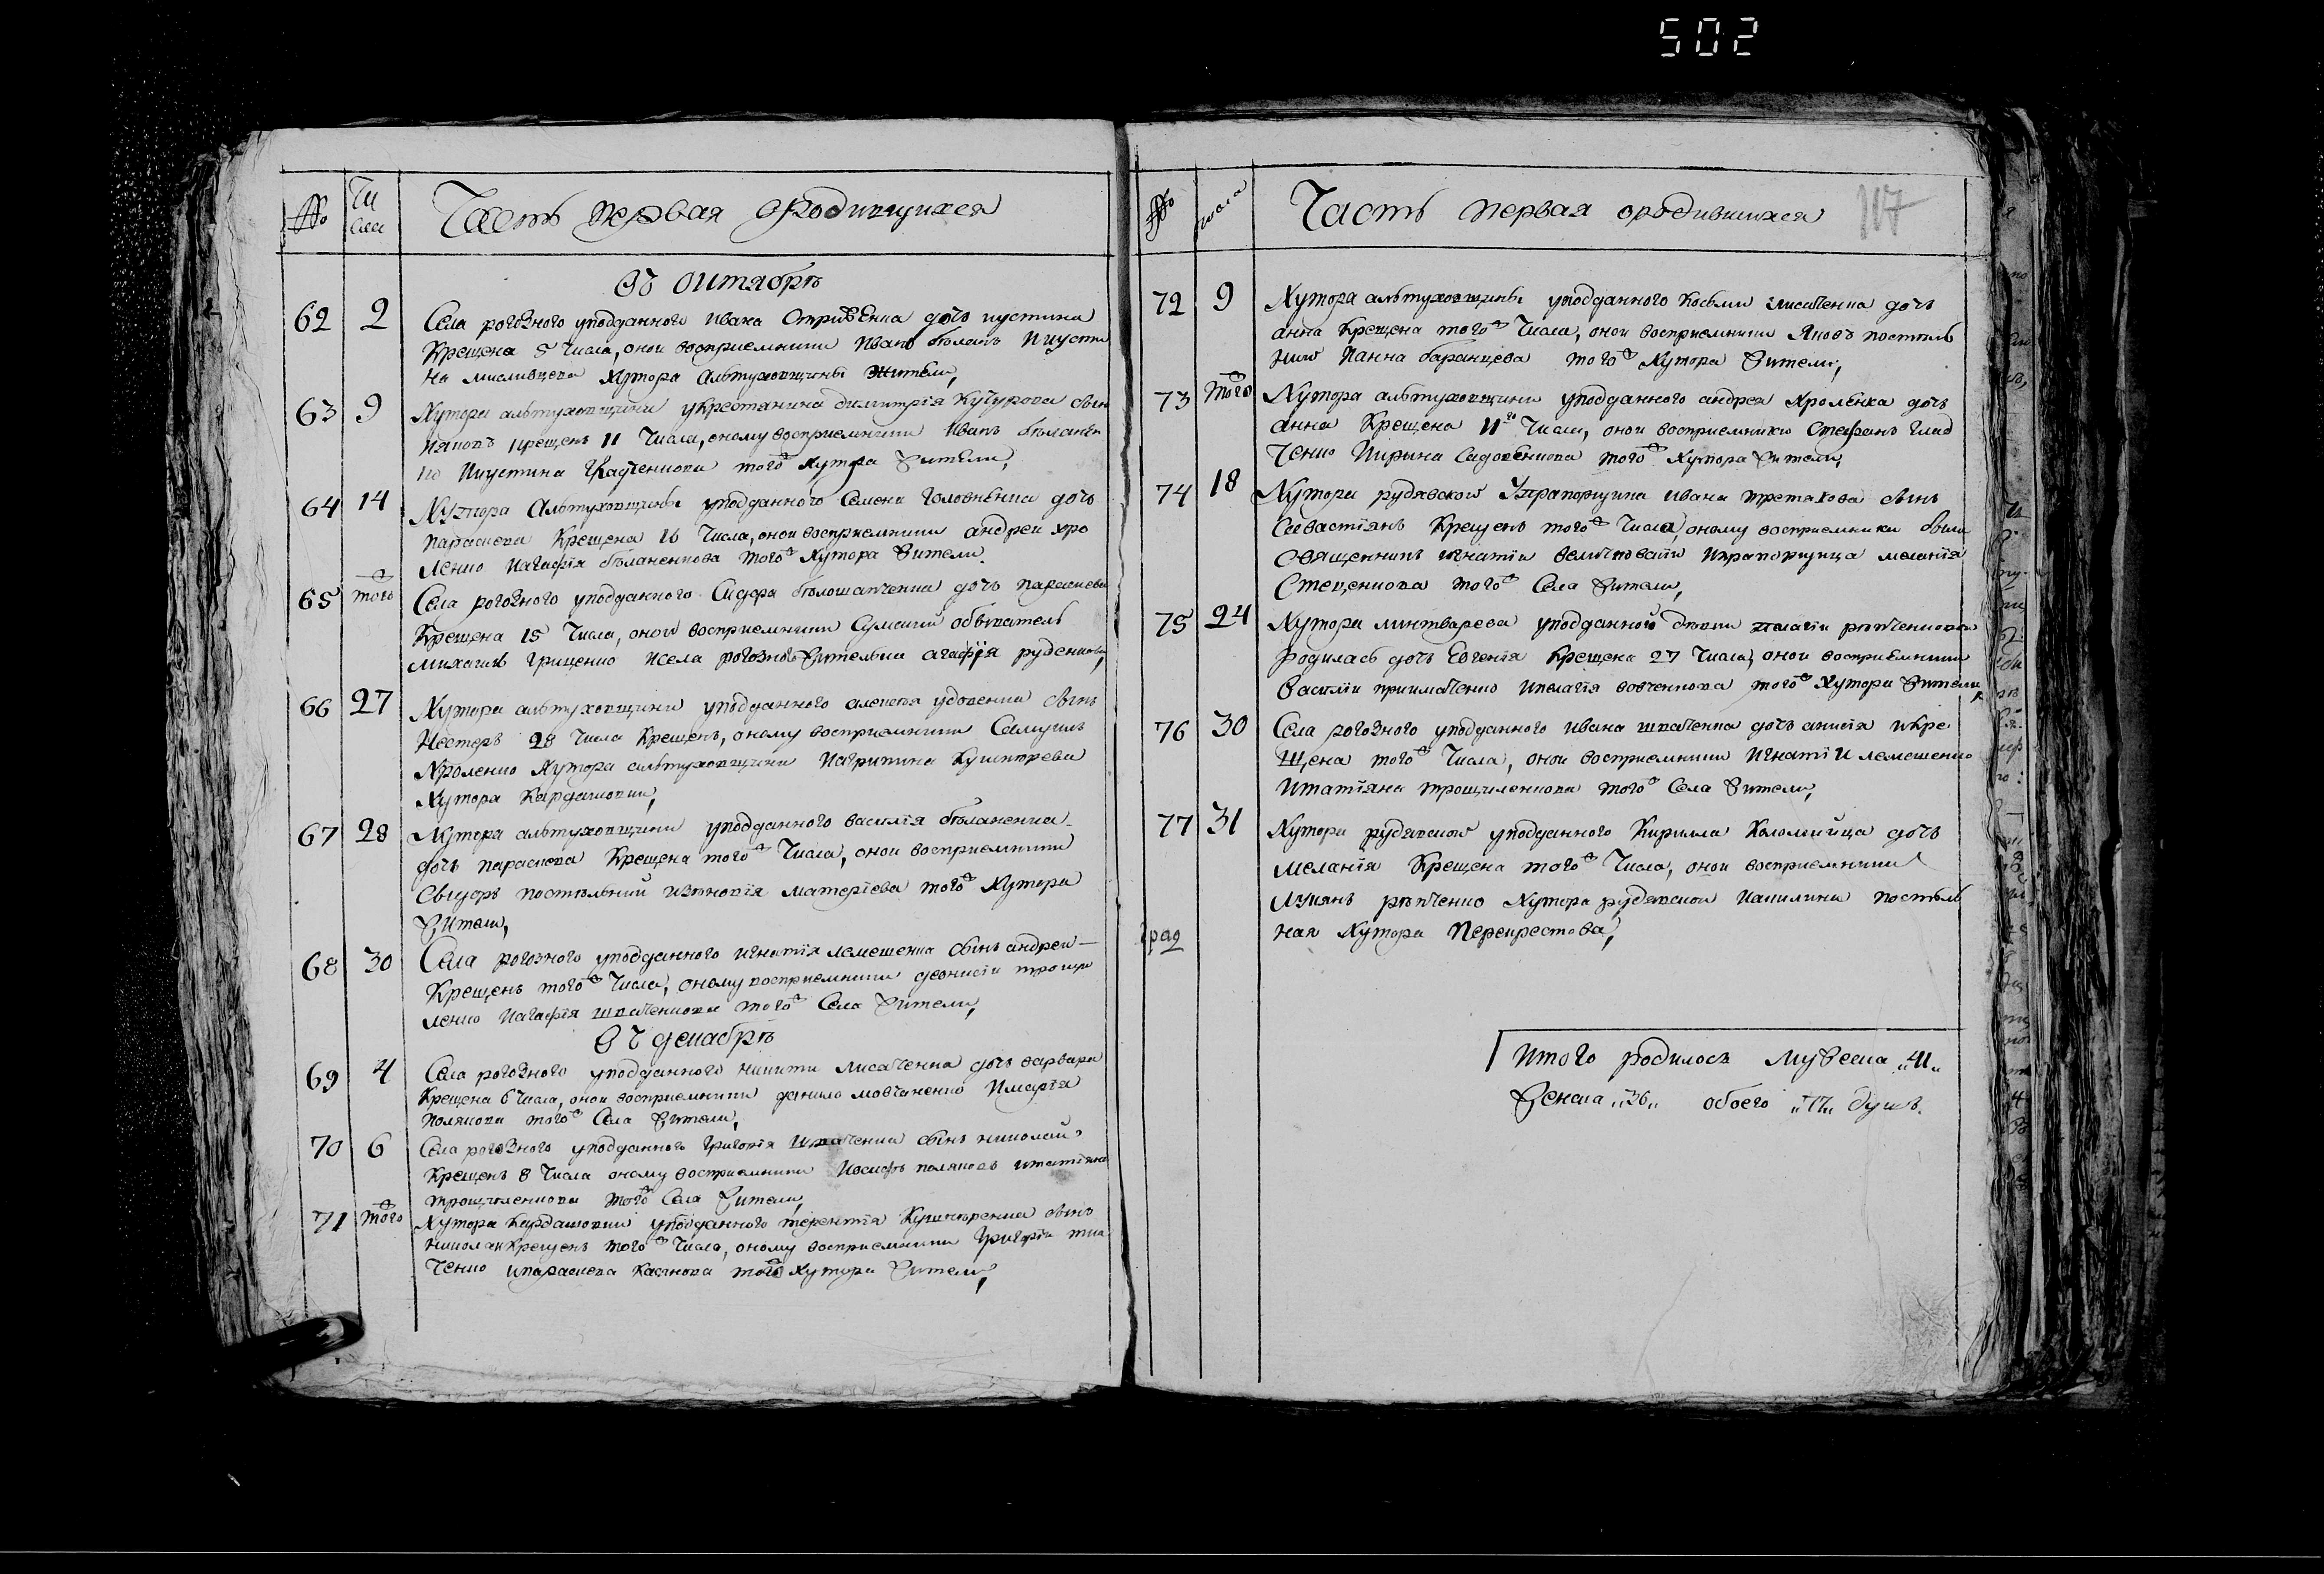 502
№ Числа Часть первая ородившихся
Въ октябрѣ
62 2 Села рогозного уподданного ивана дочь иустина
Крещена 5 Числа, оной восприемники Иванъ бѣланъ Ииусти
на мисливцева Хутора Альтуховщины Жители,
63 9 Хутора альтуховщини укрестянина димитрія Кучурова сынъ
Яковъ крещенъ 11 Числа, оному восприемники Иванъ бѣланен
ко Ииустина Ткаченкова тогожъ хутора жители,
64 14 Хутора Альтуховщины уподданного Семена Головненка дочь
параскева Крещена 16 Числа, оной восприемники андрей хро
ленко Иагафія бѣланенкова тогожъ Хутора жители.
65 тогожъ Села рогозного уподданного Сидора бѣлошапченка дочь параскева
Крещена 15 Числа, оной восприемники Сумский обыватель
михаилъ Грищенко Исела рогозного жительки агафія руденкова,
66 27 Хутора альтуховщини уподданного алексея удовенка сынъ
Несторъ 28 Числа Крещенъ, оному восприемники Самуилъ
Хроленко Хутора альтуховщини Иагрипина
Хутора Кардашовки,
67 28 Хутора альтуховщини уподданного василія бѣланенка
дочь параскева Крещена тогожъ Числа, оной восприемники
постѣльний матвѣева тогожъ Хутора
жители,
68 30 Села рогозного уподданного игнатія лемешенка сынъ андрей
Крещенъ тогожъ Числа, оному восприемники деонисій трощи
ленко Иагафія шпаченкова тогожъ Села жители,
Въ декабрѣ
69 4 Села рогозного уподданного никити лисаченка дочь варвара
Крещена 6 Числа, оной восприемники данило мовчаненко Имарія
полякова тогожъ Села жители,
70 6 Села рогозного уподданного григорія шпаченка сынъ николай
Крещенъ 8 Числа оному восприемники Иосифъ поляковъ итатіяна
трощиленкова тогожъ Села жители,
71 тогожъ Хутора Кардашовки уподданного терентія Кушнѣренка сынъ
николай Крещенъ тогожъ Числа, оному восприемники Григорій тка
ченко ипараскева Касянова тогожъ Хутора жители,
№ числа Часть первая ородившихся 117
72 9 Хутора альтуховщины уподданного Косьми лисаченка дочь
анна Крещена тогожъ Числа, оной восприемники Яковъ постѣль
ний Ианна баранцева тогожъ Хутора жители,
73 тогожъ Хутора альтуховщини уподданного андрея Хроленка дочь
анна Крещена 11го Числа, оной восприемники Стефанъ Глад
ченко Иирина Садовенкова тогожъ Хутора жители,
74 18 Хутора рудявской Упрапорщика ивана третякова сынъ
Севастіянъ Крещенъ тогожъ Числа, оному восприемники были
Священникъ игнатій Ипрапорщица меланія
Стеценкова тогожъ Села жители,
75 24 Хутора линтварева уподданной дѣвки пелагіи рѣпченковой
родилась дочь Евгенія Крещена 27 Числа, оной восприемники
Василій приймаченко Ипелагія вовченкова тогожъ Хутора жители,
76 30 Села рогозного уподданного ивана шпаченка дочь анисія икре
щена тогожъ Числа, оной восприемники Игнатій лемешенко
Итатіяна трощиленкова тогожъ Села жители,
77 31 Хутора рудявской уподданного Кирилла Коломийца дочь
меланія Крещена тогожъ Числа, оной восприемники
рѣпченко Хутора рудявской Иакилина постѣль
ная Хутора Перекрестова,
град
Итого родилось мужеска „41„
женска „36„ обоего „77„ душъ.